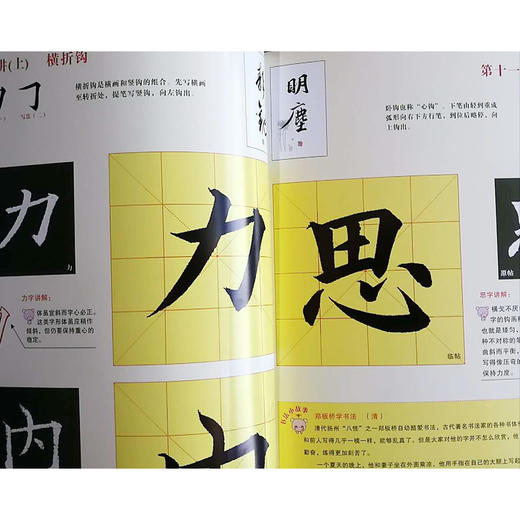 讲(上) 横折钩
写法(二)
横折钩是横画和竖钩的组合。先写横画
至转折处，提笔写竖钩，向左钩出。
力
力
力字讲解：
体虽宜斜而字心必正。
这类字形体虽应稍作
倾斜，但仍要保持重心的
稳定。
力
内
内
明
尘
第十一
卧钩也称“心钩”。下笔由轻到重成
弧形向右下方行笔，到位后略停，向
上钩出。
思
临帖
原帖
思字讲解：
横戈不厌
字的钩画
也就是矮勾、
种不对称的
曲斜而平衡，
写得像压弯的
保持力度。
书法小故事
郑板桥学书法 （清）
清代扬州“八怪”之一郑板桥自幼酷爱书法，古代著名书法家的各种书体
和前人写得几乎一模一样，能够乱真了。但是大家对他的字并不怎么欣赏，他
勤奋，练得更加刻苦了。
一个夏天的晚上，他和妻子坐在外面乘凉，他用手指在自己的大腿上写起